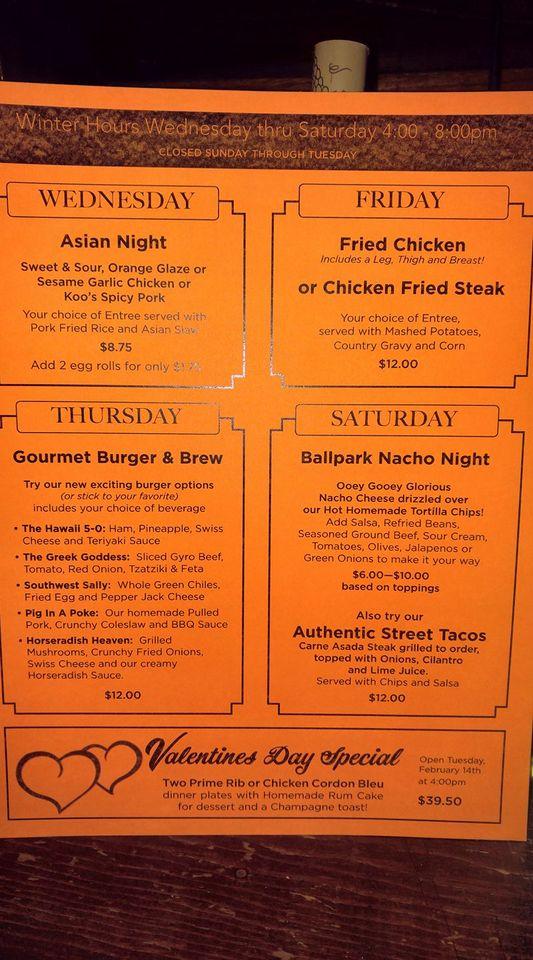 Winter Hours Wednesday thru Saturday 4:00 - 8:00pm
CLOSED SUNDAY THROUGH TUESDAY
WEDNESDAY
Asian Night
Sweet & Sour, Orange Glaze or
Sesame Garlic Chicken or
Koo's Spicy Pork
Your choice of Entree served with
Pork Fried Rice and Asian Slaw
$8.75
Add 2 egg rolls for only
FRIDAY
Fried Chicken
Includes a Leg, Thigh and Breast!
or Chicken Fried Steak
Your choice of Entree,
served with Mashed Potatoes,
Country Gravy and Corn
$12.00
THURSDAY
Gourmet Burger & Brew
Try our new exciting burger options
(or stick to your favorite)
includes your choice of beverage
• The Hawaii 5-0: Ham, Pineapple, Swiss
Cheese and Teriyaki Sauce
• The Greek Goddess: Sliced Gyro Beef,
Tomato, Red Onion, Tzatziki & Feta
• Southwest Sally: Whole Green Chiles,
Fried Egg and Pepper Jack Cheese
• Pig In A Poke: Our homemade Pulled
Pork, Crunchy Coleslaw and BBQ Sauce
• Horseradish Heaven: Grilled
Mushrooms, Crunchy Fried Onions,
Swiss Cheese and our creamy
Horseradish Sauce.
$12.00
SATURDAY
Ballpark Nacho Night
Ooey Gooey Glorious
Nacho Cheese drizzled over
our Hot Homemade Tortilla Chips!
Add Salsa, Refried Beans,
Seasoned Ground Beef, Sour Cream,
Tomatoes, Olives, Jalapenos or
Green Onions to make it your way
$6.00—$10.00
based on toppings
Also try our
Authentic Street Tacos
Carne Asada Steak grilled to order,
topped with Onions, Cilantro
and Lime Juice.
Served with Chips and Salsa
$12.00
Valentines Day Special
Two Prime Rib or Chicken Cordon Bleu
dinner plates with Homemade Rum Cake
for dessert and a Champagne toast!
Open Tuesday,
February 14th
at 4:00pm
$39.50